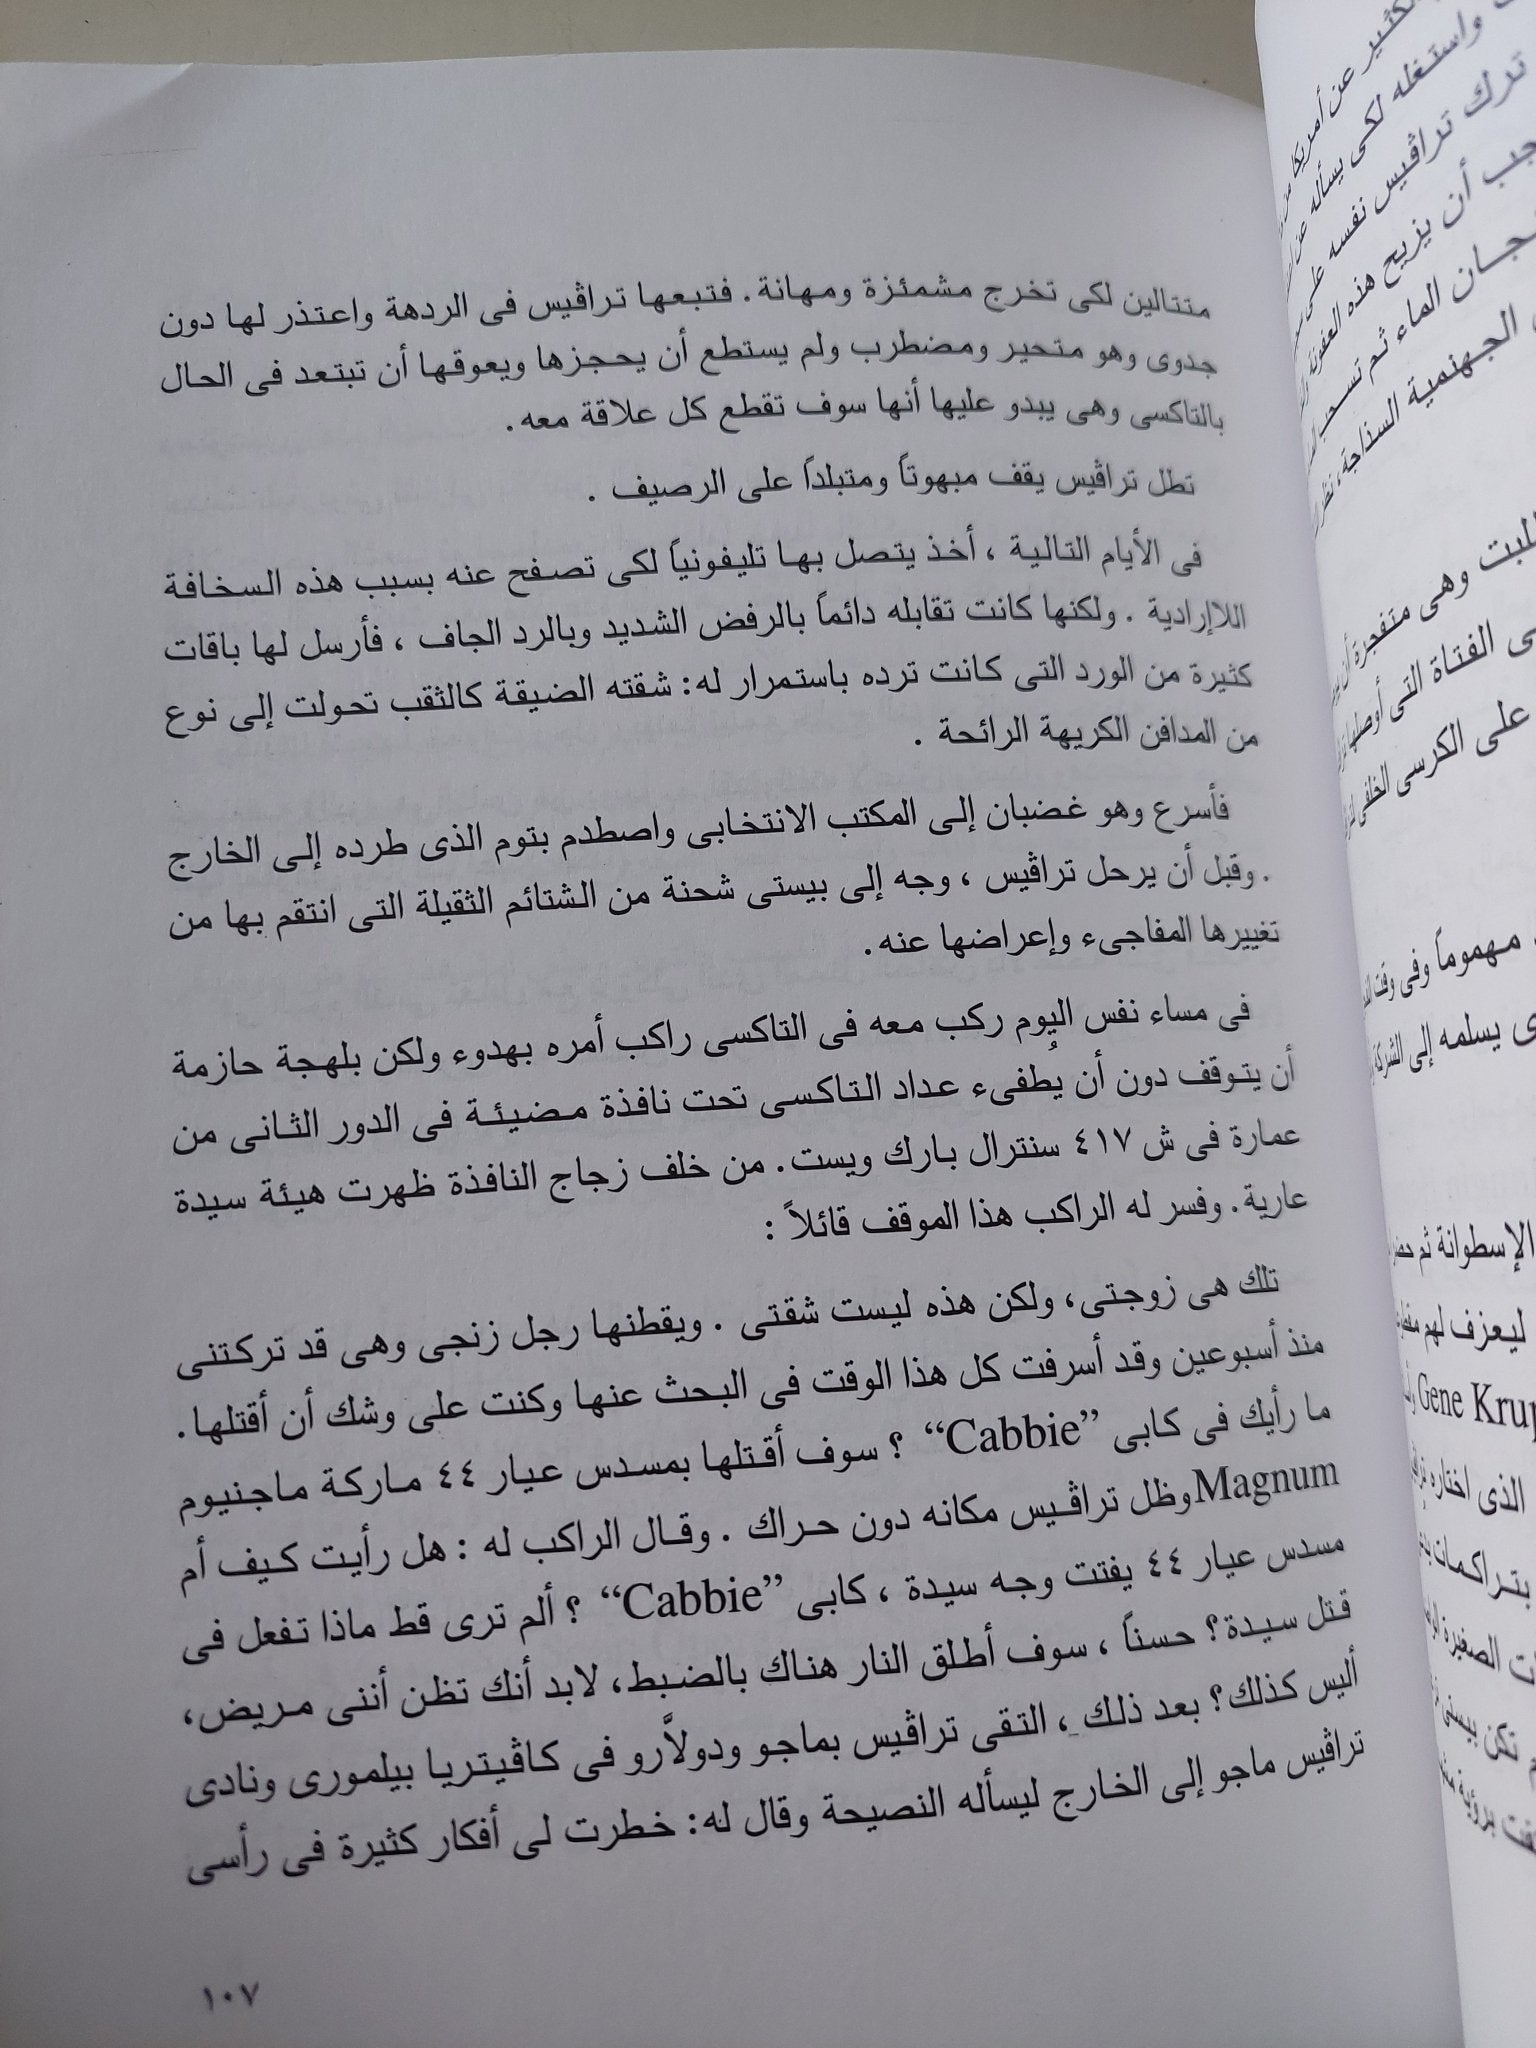 متتالين لكى تخرج مشمئزة ومهانة . فتبعها تراڤيس فى الردهة واعتذر لها دون
جدوى وهو متحير ومضطرب ولم يستطع أن يحجزها ويعوقها أن تبتعد فى الحال
بالتاكسى وهى يبدو عليها أنها سوف تقطع كل علاقة معه .
تطل تراڤيس يقف مبهوتاً ومتبلداً على الرصيف .
فى الأيام التالية ، أخذ يتصل بها تليفونياً لكى تصفح عنه بسبب هذه السخافة
اللاإرادية . ولكنها كانت تقابله دائماً بالرفض الشديد وبالرد الجاف ، فأرسل لها باقات
كثيرة من الورد التى كانت ترده باستمرار له: شقته الضيقة كالثقب تحولت إلى نوع
من المدافن الكريهة الرائحة .
فأسرع وهو غضبان إلى المكتب الانتخابى واصطدم بتوم الذى طرده إلى الخارج
. وقبل أن يرحل تراڤيس ، وجه إلى بيستى شحنة من الشتائم الثقيلة التى انتقم بها من
تغييرها المفاجىء وإعراضها عنه .
فى مساء نفس اليوم ركب معه فى التاكسى راكب أمره بهدوء ولكن بلهجة حازمة
أن يتوقف دون أن يُطفىء عداد التاكسى تحت نافذة مضيئة فى الدور الثانى من
عمارة فى ش ٤١٧ سنترال بارك ويست . من خلف زجاج النافذة ظهرت هيئة سيدة
عارية . وفسر له الراكب هذا الموقف قائلاً :
تلك هى زوجتى، ولكن هذه ليست شقتى . ويقطنها رجل زنجى وهى قد تركتنى
منذ أسبوعين وقد أسرفت كل هذا الوقت فى البحث عنها وكنت على وشك أن أقتلها .
ما رأيك فى كابى “Cabbie” ؟ سوف أقتلها بمسدس عيار ٤٤ ماركة ماجنيوم
Magnum وظل تراڤيس مكانه دون حراك . وقال الراكب له : هل رأيت كيف أم
مسدس عيار ٤٤ يفتت وجه سيدة ، كابى “Cabbie” ؟ ألم ترى قط ماذا تفعل فى
قتل سيدة؟ حسناً ، سوف أطلق النار هناك بالضبط، لابد أنك تظن أننى مريض،
أليس كذلك؟ بعد ذلك ، التقى تراڤيس بماجو ودولاَّرو فى كاڤيتريا بيلمورى ونادى
تراڤيس ماجو إلى الخارج ليسأله النصيحة وقال له: خطرت لى أفكار كثيرة فى رأسى
١٠٧
الكثير عن أمريكا من
واستغله لكى يسأله عن
ترك تراڤيس نفسه على
جب أن يزيح هذه العفونة
جان الماء ثم تسحب
الجهنمية السذاجة، نظر
لبت وهى متفجرة أن
ى الفتاة التى أوصلها
على الكرسى الخلفى
مهموماً وفى وقت
ى يسلمه إلى الشركة
الإسطوانة ثم
ليعزف لهم
Gene Krup
الذى اختاره
بتراكمات
ات الصغيرة
م تكن بيستى
فت برؤية